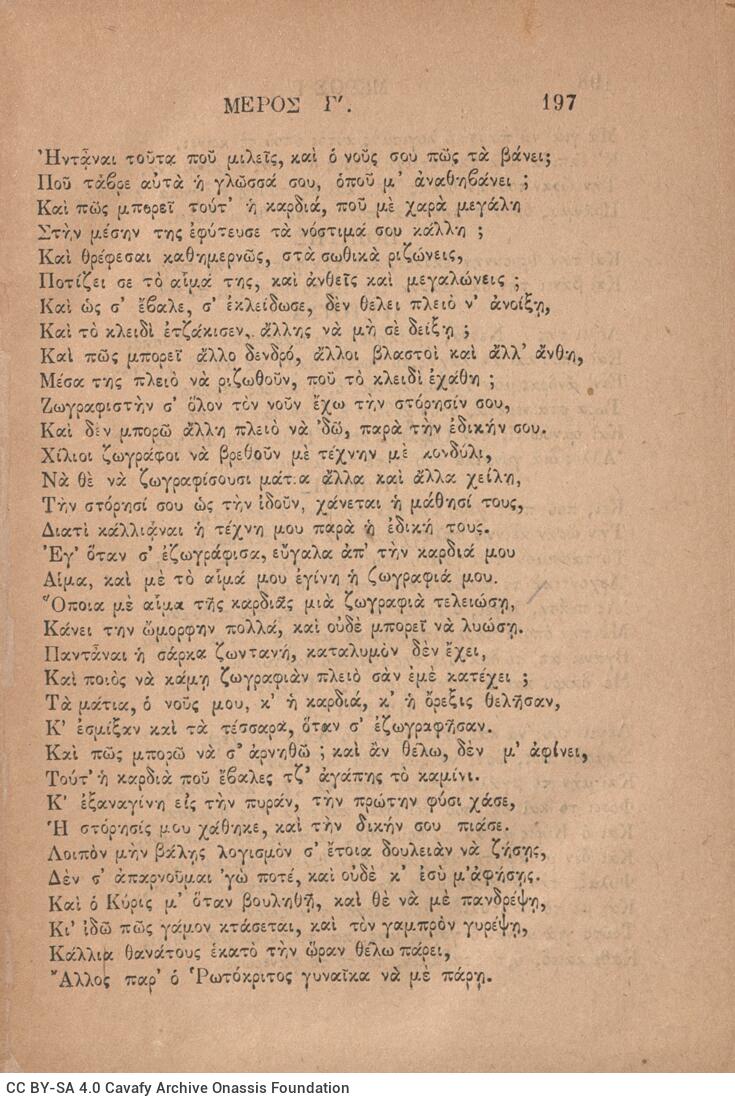 ΜΕΡΟΣ Γʹ. 197
Ἠντᾶναι τοῦτα ποῦ μιλεῖς, καὶ ὁ νοῦς σου πῶς τὰ βάνει;
Ποῦ τἆβρε αὐτὰ ἡ γλῶσσά σου, ὁποῦ μ' ἀναθηβάνει ;
Καὶ πῶς μπορεῖ τούτ' ἡ καρδιά, ποῦ μὲ χαρὰ μεγάλη
Στὴν μέσην της ἐφύτευσε τὰ νόστιμά σου κάλλη ;
Καὶ θρέφεσαι καθημερνῶς, στὰ σωθικὰ ριζώνεις,
Ποτίζει σε τὸ αἷμά της, καὶ ἀνθεῖς καὶ μεγαλώνεις ;
Καὶ ὡς σ' ἔβαλε, σ' ἐκλείδωσε, δὲν θελει πλειὸ ν' ἀνοίξῃ,
Καὶ τὸ κλειδὶ ἐτζάκισεν, ἄλλης νὰ μὴ σὲ δείξῃ ;
Καὶ πῶς μπορεῖ ἄλλο δενδρό, ἄλλοι βλαστοὶ καὶ ἄλλ' ἄνθη,
Μέσα της πλειὸ νὰ ριζωθοῦν, ποῦ τὸ κλειδὶ ἐχάθη ;
Ζωγραφιστὴν σ' ὅλον τὸν νοῦν ἔχω τὴν στόρησίν σου,
Καὶ δὲν μπορῶ ἄλλη πλειὸ νὰ 'δῶ, παρὰ τὴν ἐδικήν σου.
Χίλιοι ζωγράφοι νὰ βρεθοῦν μὲ τέχνην μὲ κονδύλι,
Νὰ θὲ νὰ ζωγραφίσουσι μάτια ἄλλα καὶ ἄλλα χείλη,
Τὴν στόρησί σου ὡς τὴν ἰδοῦν, χάνεται ἡ μάθησί τους,
Διατὶ κάλλιᾶναι ἡ τέχνη μου παρὰ ἡ ἐδική τους.
Ἐγ' ὅταν σ' ἐζωγράφισα, εὔγαλα ἀπ' τὴν καρδιά μου
Αἷμα, καὶ μὲ τὸ αἷμά μου ἐγίνη ἡ ζωγραφιά μου.
Ὅποια μὲ αἷμα τῆς καρδιᾶς μιὰ ζωγραφιὰ τελειώσῃ,
Κάνει την ὤμορφην πολλά, καὶ οὐδὲ μπορεῖ νὰ λυώσῃ.
Παντᾶναι ἡ σάρκα ζωντανή, καταλυμὸν δὲν ἔχει,
Καὶ ποιὸς νὰ κάμῃ ζωγραφιὰν πλειὸ σὰν ἐμὲ κατέχει ;
Τὰ μάτια, ὁ νοῦς μου, κ' ἡ καρδιά, κ' ἡ ὄρεξις θελῆσαν,
Κ' ἐσμίξαν καὶ τὰ τέσσαρα, ὅταν σ' ἐζωγραφῆσαν.
Καὶ πῶς μπορῶ νὰ σ' ἀρνηθῶ ; καὶ ἂν θέλω, δὲν μ' ἀφίνει,
Τούτ' ἡ καρδιὰ ποῦ ἔβαλες τζ' ἀγάπης τὸ καμίνι.
Κ' ἐξαναγίνη εἰς τὴν πυράν, τὴν πρώτην φύσι χάσε,
Ἡ στόρησίς μου χάθηκε, καὶ τὴν δικήν σου πιάσε.
Λοιπὸν μὴν βάλῃς λογισμὸν σ' ἔτοια δουλειὰν νὰ ζήσῃς,
Δὲν σ' ἀπαρνοῦμαι 'γὼ ποτέ, καὶ οὐδὲ κ' ἐσὺ μ' ἀφήσῃς.
Καὶ ὁ Κύρις μ' ὅταν βουληθῇ, καὶ θὲ νὰ μὲ πανδρέψῃ,
Κι' ἰδῶ πῶς γάμον κτάσεται, καὶ τὸν γαμπρὸν γυρέψῃ,
Κάλλια θανάτους ἑκατὸ τὴν ὥραν θέλω πάρει,
Ἄλλος παρ' ὁ Ῥωτόκριτος γυναῖκα νὰ μὲ πάρῃ.
CC BY-SA 4.0 Cavafy Archive Onassis Foundation